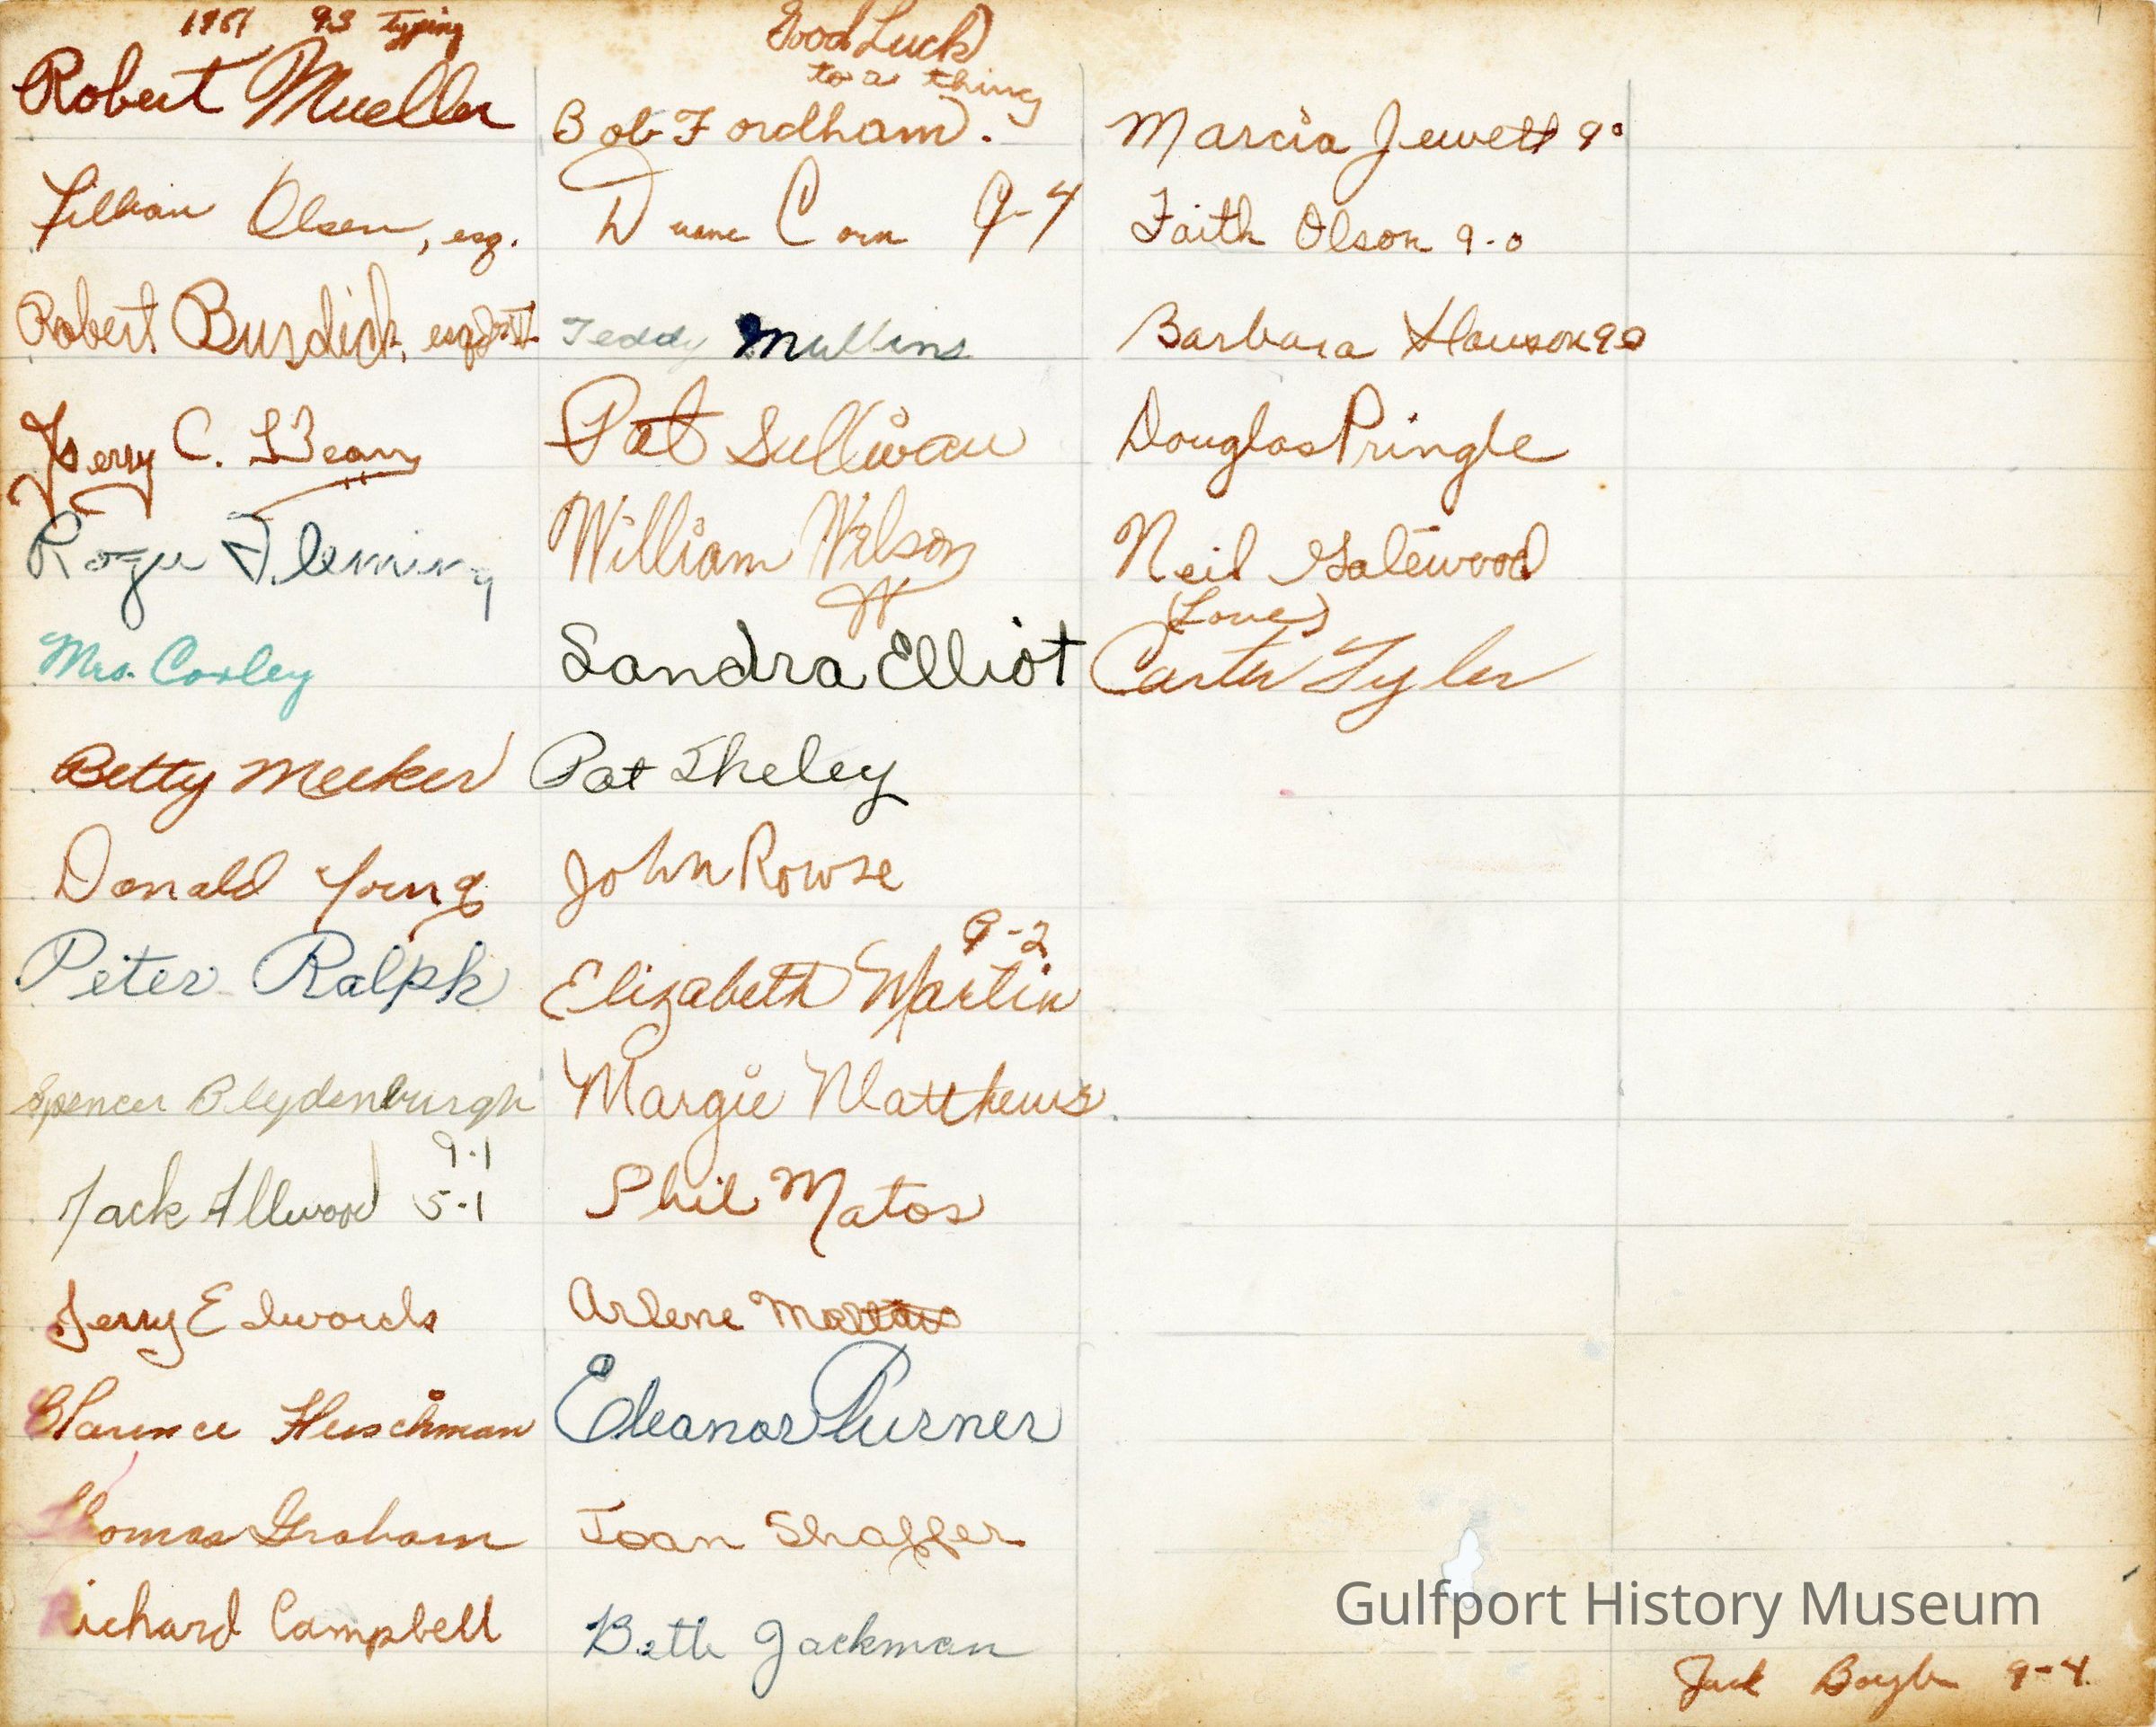 1951 9.3 typing
Robert Mueller
Lillian Olsen, esq.
Robert Burdick, esq.
Jerry C.
Roger Fleming
Mrs. Corley
Betty Meeker
Donald Young
Peter Ralph
Spencer Blydenburgh
9.1
Jack Allwood 5.1
Jerry Edwards
Clarence Fleischman
Thomas Graham
Richard Campbell
Good Luck
to a thing
Bob Fordham.
Duane Corn 9-4
Teddy Mullins
Pat Sullivan
William Wilson
Sandra Elliot
Pat Sheley
John Rowse
9-2
Elizabeth Martin
Margie Matthews
Phil Matos
Arlene
Eleanor Purner
Joan Shaffer
Beth Jackman
Marcia Jewett 9°
Faith Olson 9-0
Barbara 90
Douglas Pringle
Neil Gatewood
(Love)
Carter Tyler
Gulfport History Museum
Jack 9-4